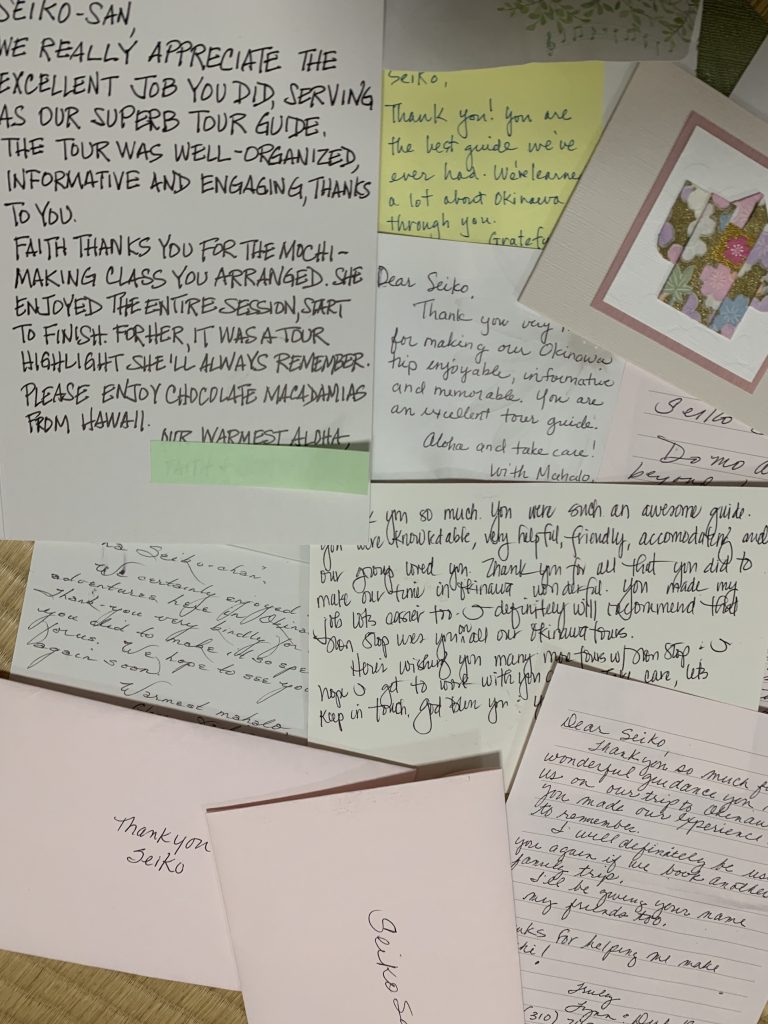 SEIKO-SAN,
WE REALLY APPRECIATE THE
EXCELLENT JOB YOU DID, SERVING
AS OUR SUPERB TOUR GUIDE.
THE TOUR WAS WELL-ORGANIZED,
INFORMATIVE AND ENGAGING, THANKS
TO YOU.
FAITH THANKS YOU FOR THE MOCHI-
MAKING CLASS YOU ARRANGED. SHE
ENJOYED THE ENTIRE SESSION, START
TO FINISH. FOR HER, IT WAS A TOUR
HIGHLIGHT SHE'LL ALWAYS REMEMBER.
PLEASE ENJOY CHOCOLATE MACADAMIAS
FROM HAWAII.
OUR WARMEST ALOHA,
FAITH
Seiko,
Thank you! You are
the best guide we've
ever had. We've learne
a lot about Okinawa
through you.
Gratefu
Dear Seiko,
Thank you very
for making our Okinawa
trip enjoyable, informative
and memorable. You are
an excellent tour guide.
Aloha and take care!
With Mahalo,
Seiko
Domo a
beyond
you so much. You were such an awesome guide.
you were knowledgable, very helpful, friendly, accomodating and
our group loved you. Thank you for all that you did to
make our time in Okinawa wonderful. You made my
job lots easier too. definitely will recommend that
Non Stop uses you on all our Okinawa tours.
Here's wishing you many more tours w/ Non Stop.
hope get to work with you care, lets
keep in touch, God bless you
Seiko-chan,
We certainly enjoyed
adventures here in Okina
Thank you very kindly for
you did to make it so spe
for us. We hope to see you
again soon
Warmest mahalo,
Dear Seiko,
Thank you so much f
wonderful guidance you
us on our trip to Okinaw
you made our experience
to remember.
I will definitely be us
you again if we book another
family trip.
I'll be giving your name
my friends too.
nks for helping me make
hi!
Truly
Lynn
(310) 7
Thank you
Seiko
Seiko Sa